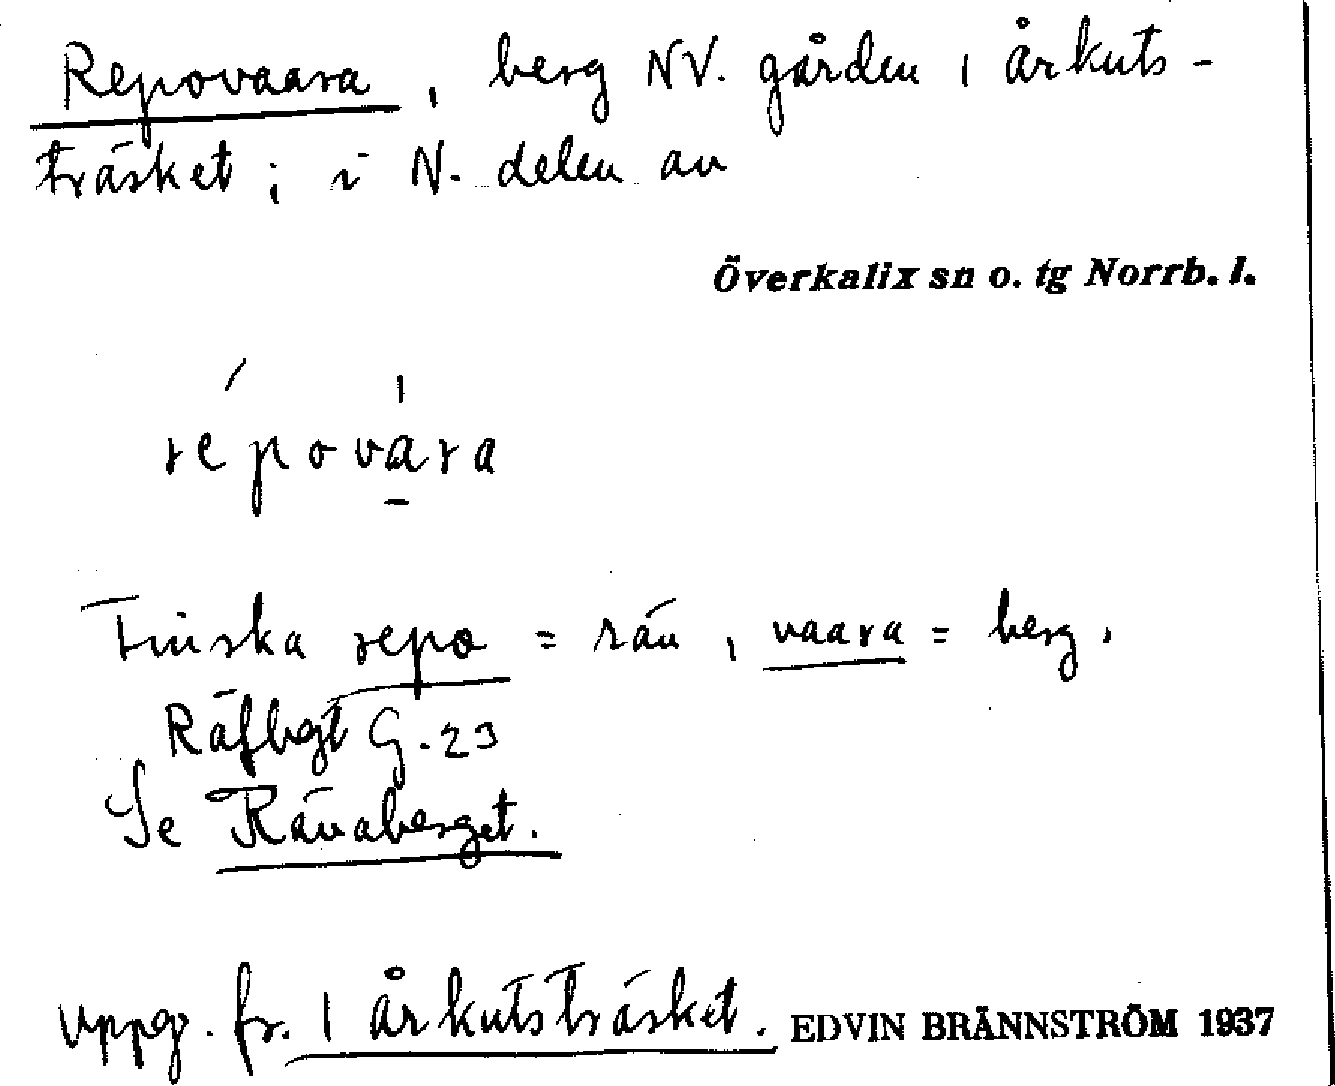 Repovaara, berg NV. gården 1 årkuts-
träsket; i N. delen av
Överkalix sn o. tg Norrb. l.
répovara
Finska repo = räv, vaara = berg.
Räfbgt G. 23
Se Rävaberget.
uppg. fr. 1 årkutsträsket. EDVIN BRÄNNSTRÖM 1937